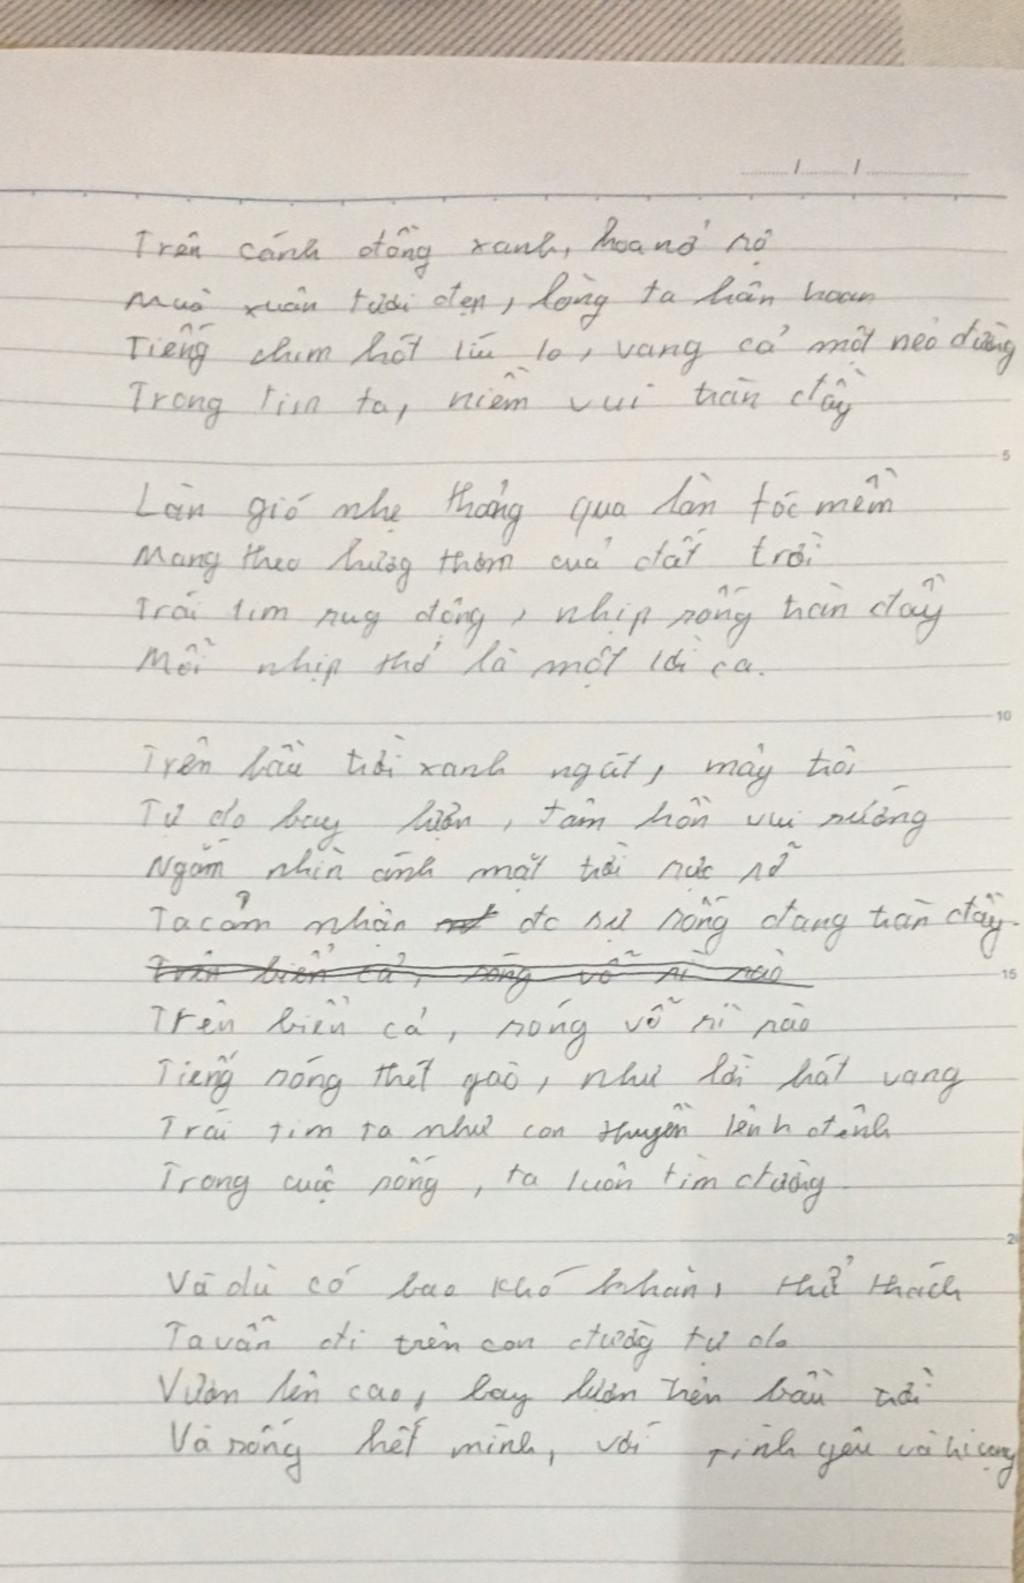 Trên cánh đồng xanh, hoa nở rộ
Mùa xuân tươi đẹp, lòng ta hân hoan
Tiếng chim hót líu lo, vang cả một nẻo đường
Trong tim ta, niềm vui tràn đầy
Làn gió nhẹ thoảng qua làn tóc mềm
Mang theo hương thơm của đất trời
Trái tim rug động, nhịp sống tràn đầy
Mỗi nhịp thở là một lời ca.
Trên bầu trời xanh ngát, mây trôi
Tự do bay lượn, tâm hồn vui sướng
Ngắm nhìn ánh mặt trời rực rỡ
Ta cảm nhận đc sự sống đang tràn đầy.
Trên biển cả, sóng vỗ rì rào
Trên biển cả, sóng vỗ rì rào
Tiếng sóng thét gào, như lời hát vang
Trái tim ta như con thuyền lênh đênh
Trong cuộc sống, ta luôn tìm đường.
Và dù có bao khó khăn, thử thách
Ta vẫn đi trên con đường tự do
Vươn lên cao, bay lượn trên bầu trời
Và sống hết mình, với tình yêu và hi vọng